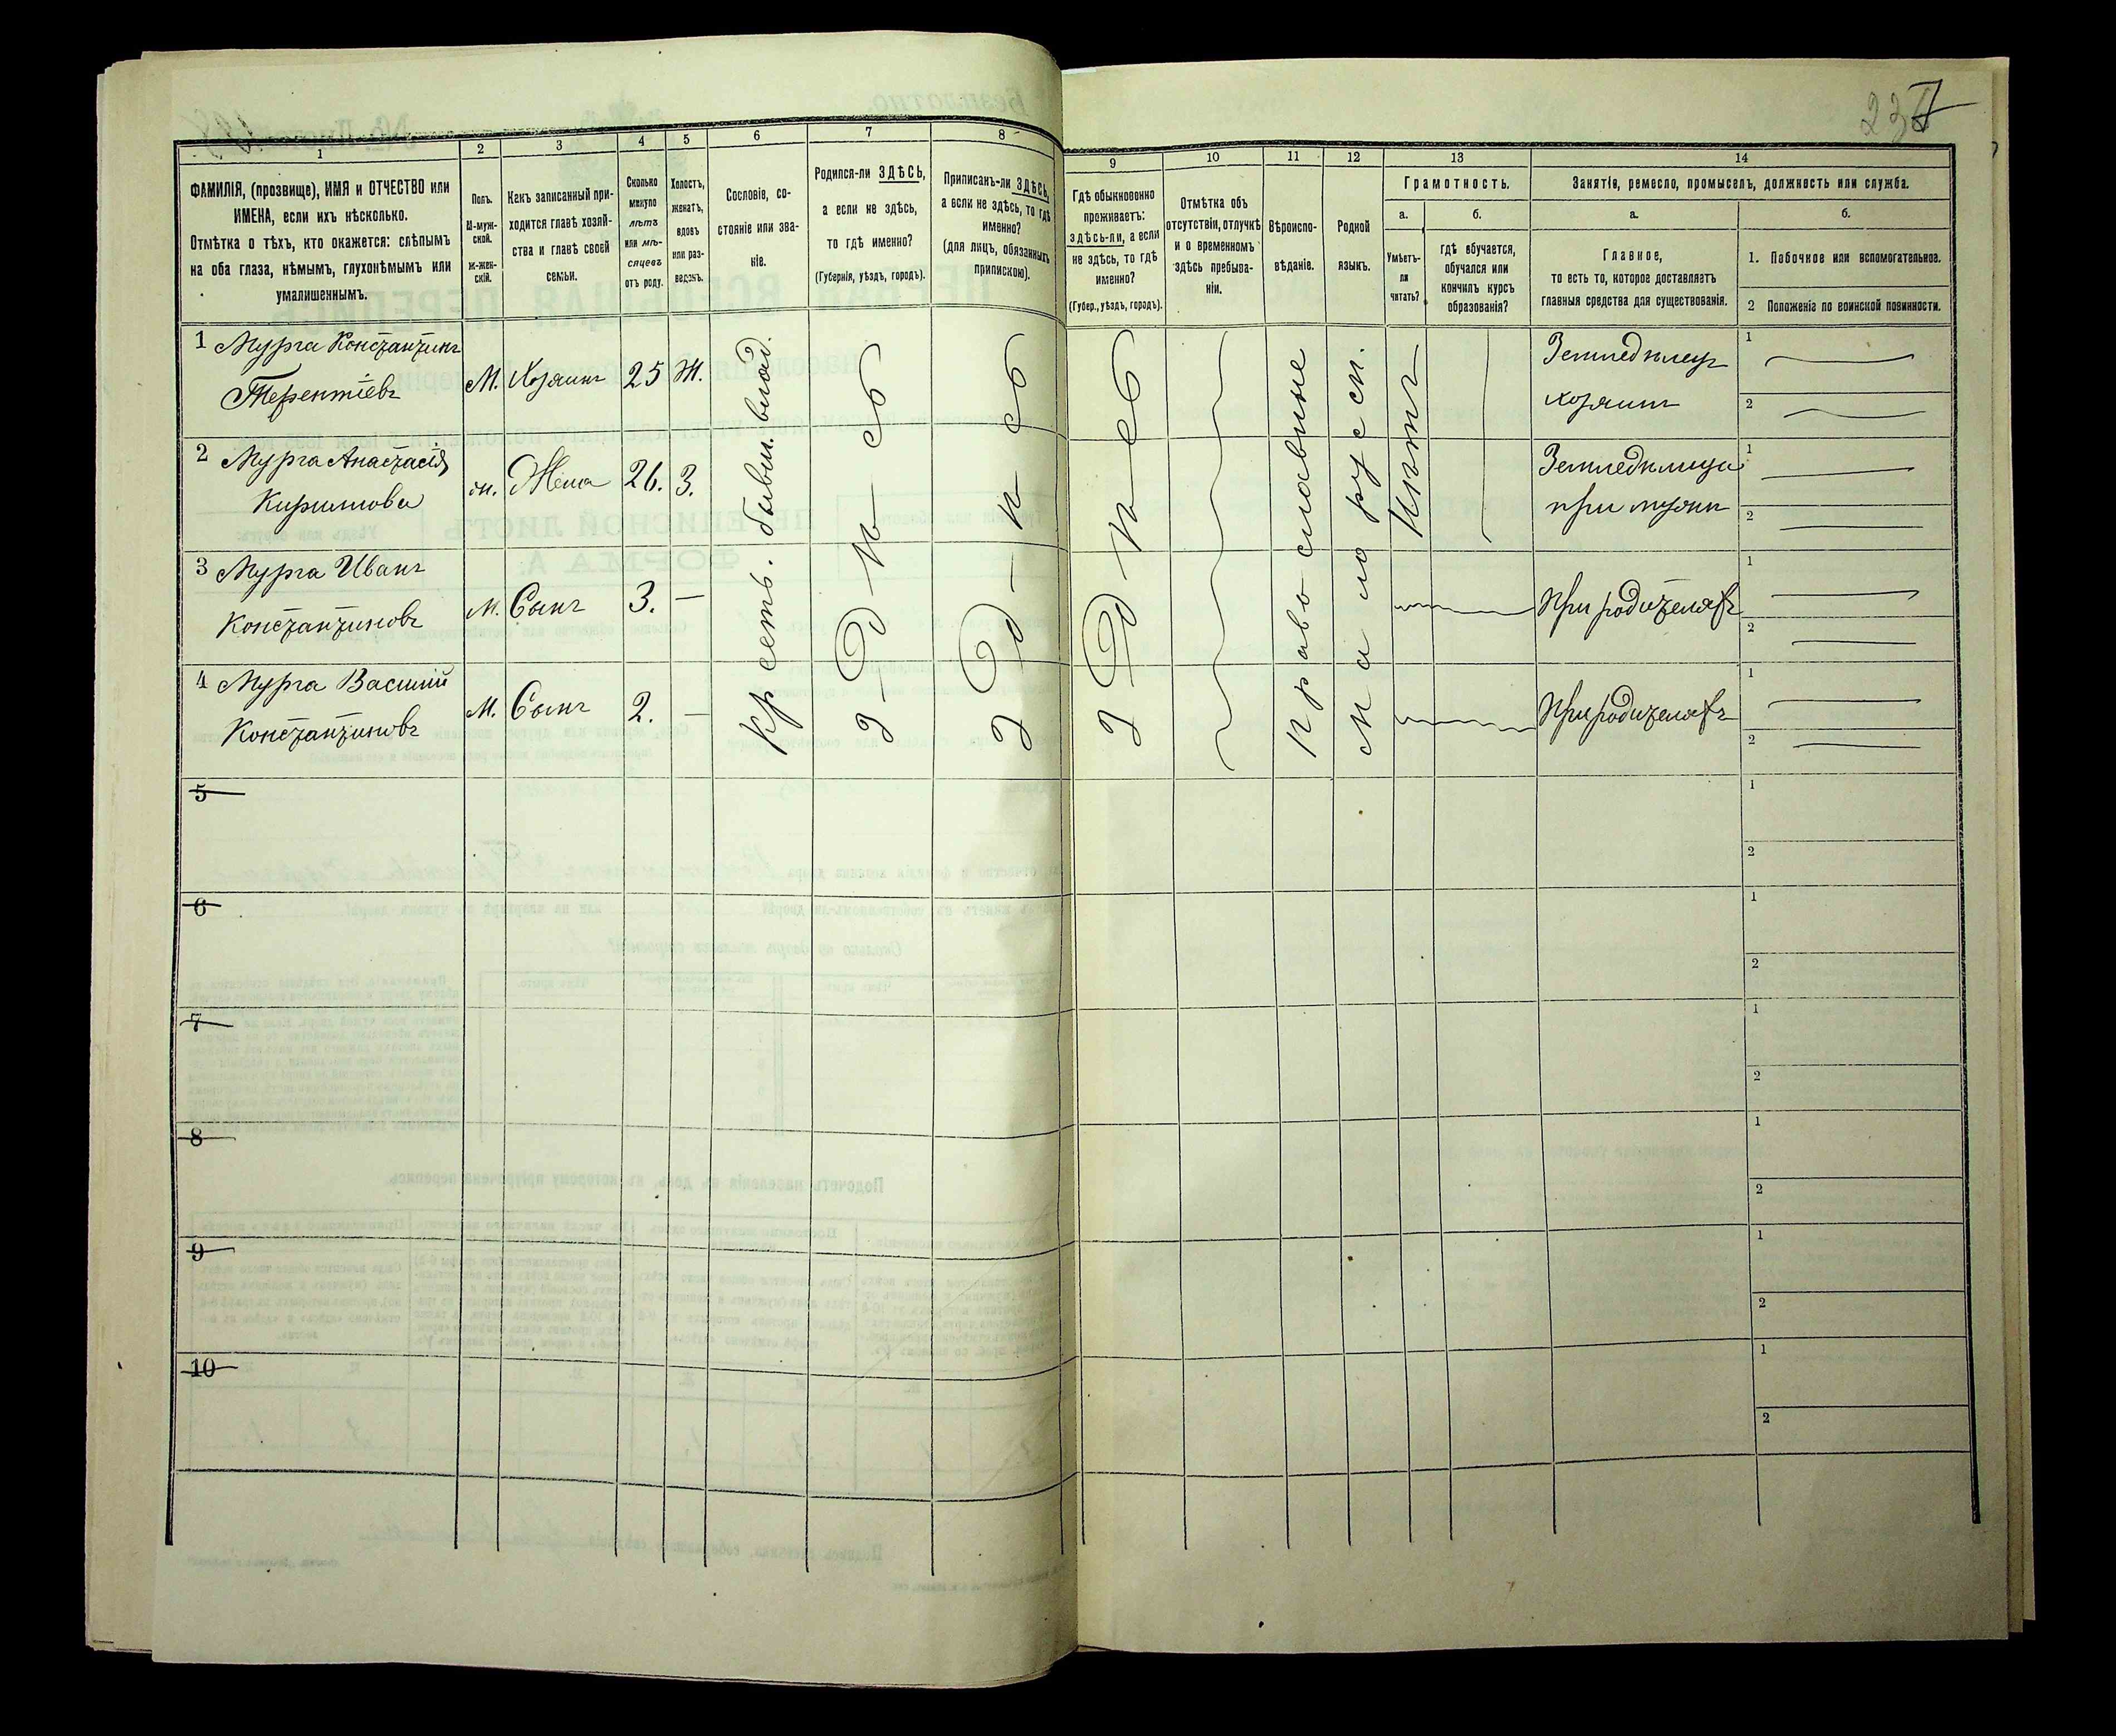 237
1 2 3 4 5 6 7 8 9 10 11 12 13 14
ФАМИЛІЯ, (прозвище), ИМЯ и ОТЧЕСТВО или
ИМЕНА, если ихъ нѣсколько.
Отмѣтка о тѣхъ, кто окажется: слѣпымъ
на оба глаза, нѣмымъ, глухонѣмымъ или
умалишеннымъ.
Полъ.
М-муж-
ской.
Ж-жен-
скій.
Какъ записанный при-
ходится главѣ хозяй-
ства и главѣ своей
семьи.
Сколько
минуло
лѣтъ
или мѣ-
сяцевъ
отъ роду.
Холостъ,
женатъ,
вдовъ
или раз-
веденъ.
Сословіе, со-
стояніе или зва-
ніе.
Родился-ли ЗДѢСЬ,
а если не здѣсь,
то гдѣ именно?
(Губернія, уѣздъ, городъ).
Приписанъ-ли ЗДѢСЬ,
а если не здѣсь, то гдѣ
именно?
(для лицъ, обязанныхъ
припискою).
Гдѣ обыкновенно
проживаетъ:
здѣсь-ли, а если
не здѣсь, то гдѣ
именно?
(Губер., уѣздъ, городъ).
Отмѣтка объ
отсутствіи, отлучкѣ
и о временномъ
здѣсь пребыва-
ніи.
Вѣроиспо-
вѣданіе.
Родной
языкъ.
Грамотность.
а.
Умѣетъ-
ли
читать?
б.
гдѣ обучается,
обучался или
кончилъ курсъ
образованія?
Занятіе, ремесло, промыселъ, должность или служба.
а.
Главное,
то есть то, которое доставляетъ
главныя средства для существованія.
б.
1. Побочное или вспомогательное.
2 Положеніе по воинской повинности.
1 Мурга Константинъ
Терентіевъ
М. Хозяинъ 25 Ж.
Земледѣлецъ
хозяинъ
1
2
2 Мурга Анастасія
Кирилова
ж. Жена 26. З.
Земледѣлица
при мужѣ
1
2
3 Мурга Иванъ
Константиновъ
М. Сынъ 3. —
При родителяхъ
1
2
4 Мурга Василий
Константиновъ
М. Сынъ 2. —
При родителяхъ
1
2
Крестъ. бывш. влад.
Православные
Малорусск.
Нѣтъ
5
1
2
6
1
2
7
1
2
8
1
2
9
1
2
10
1
2